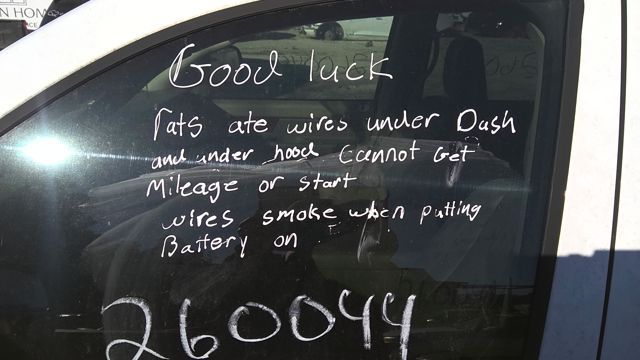 N HOM
ACE
Good luck
rats ate wires under Dash
and under hood Cannot Get
Mileage or start
wires smoke when putting
Battery on
260044